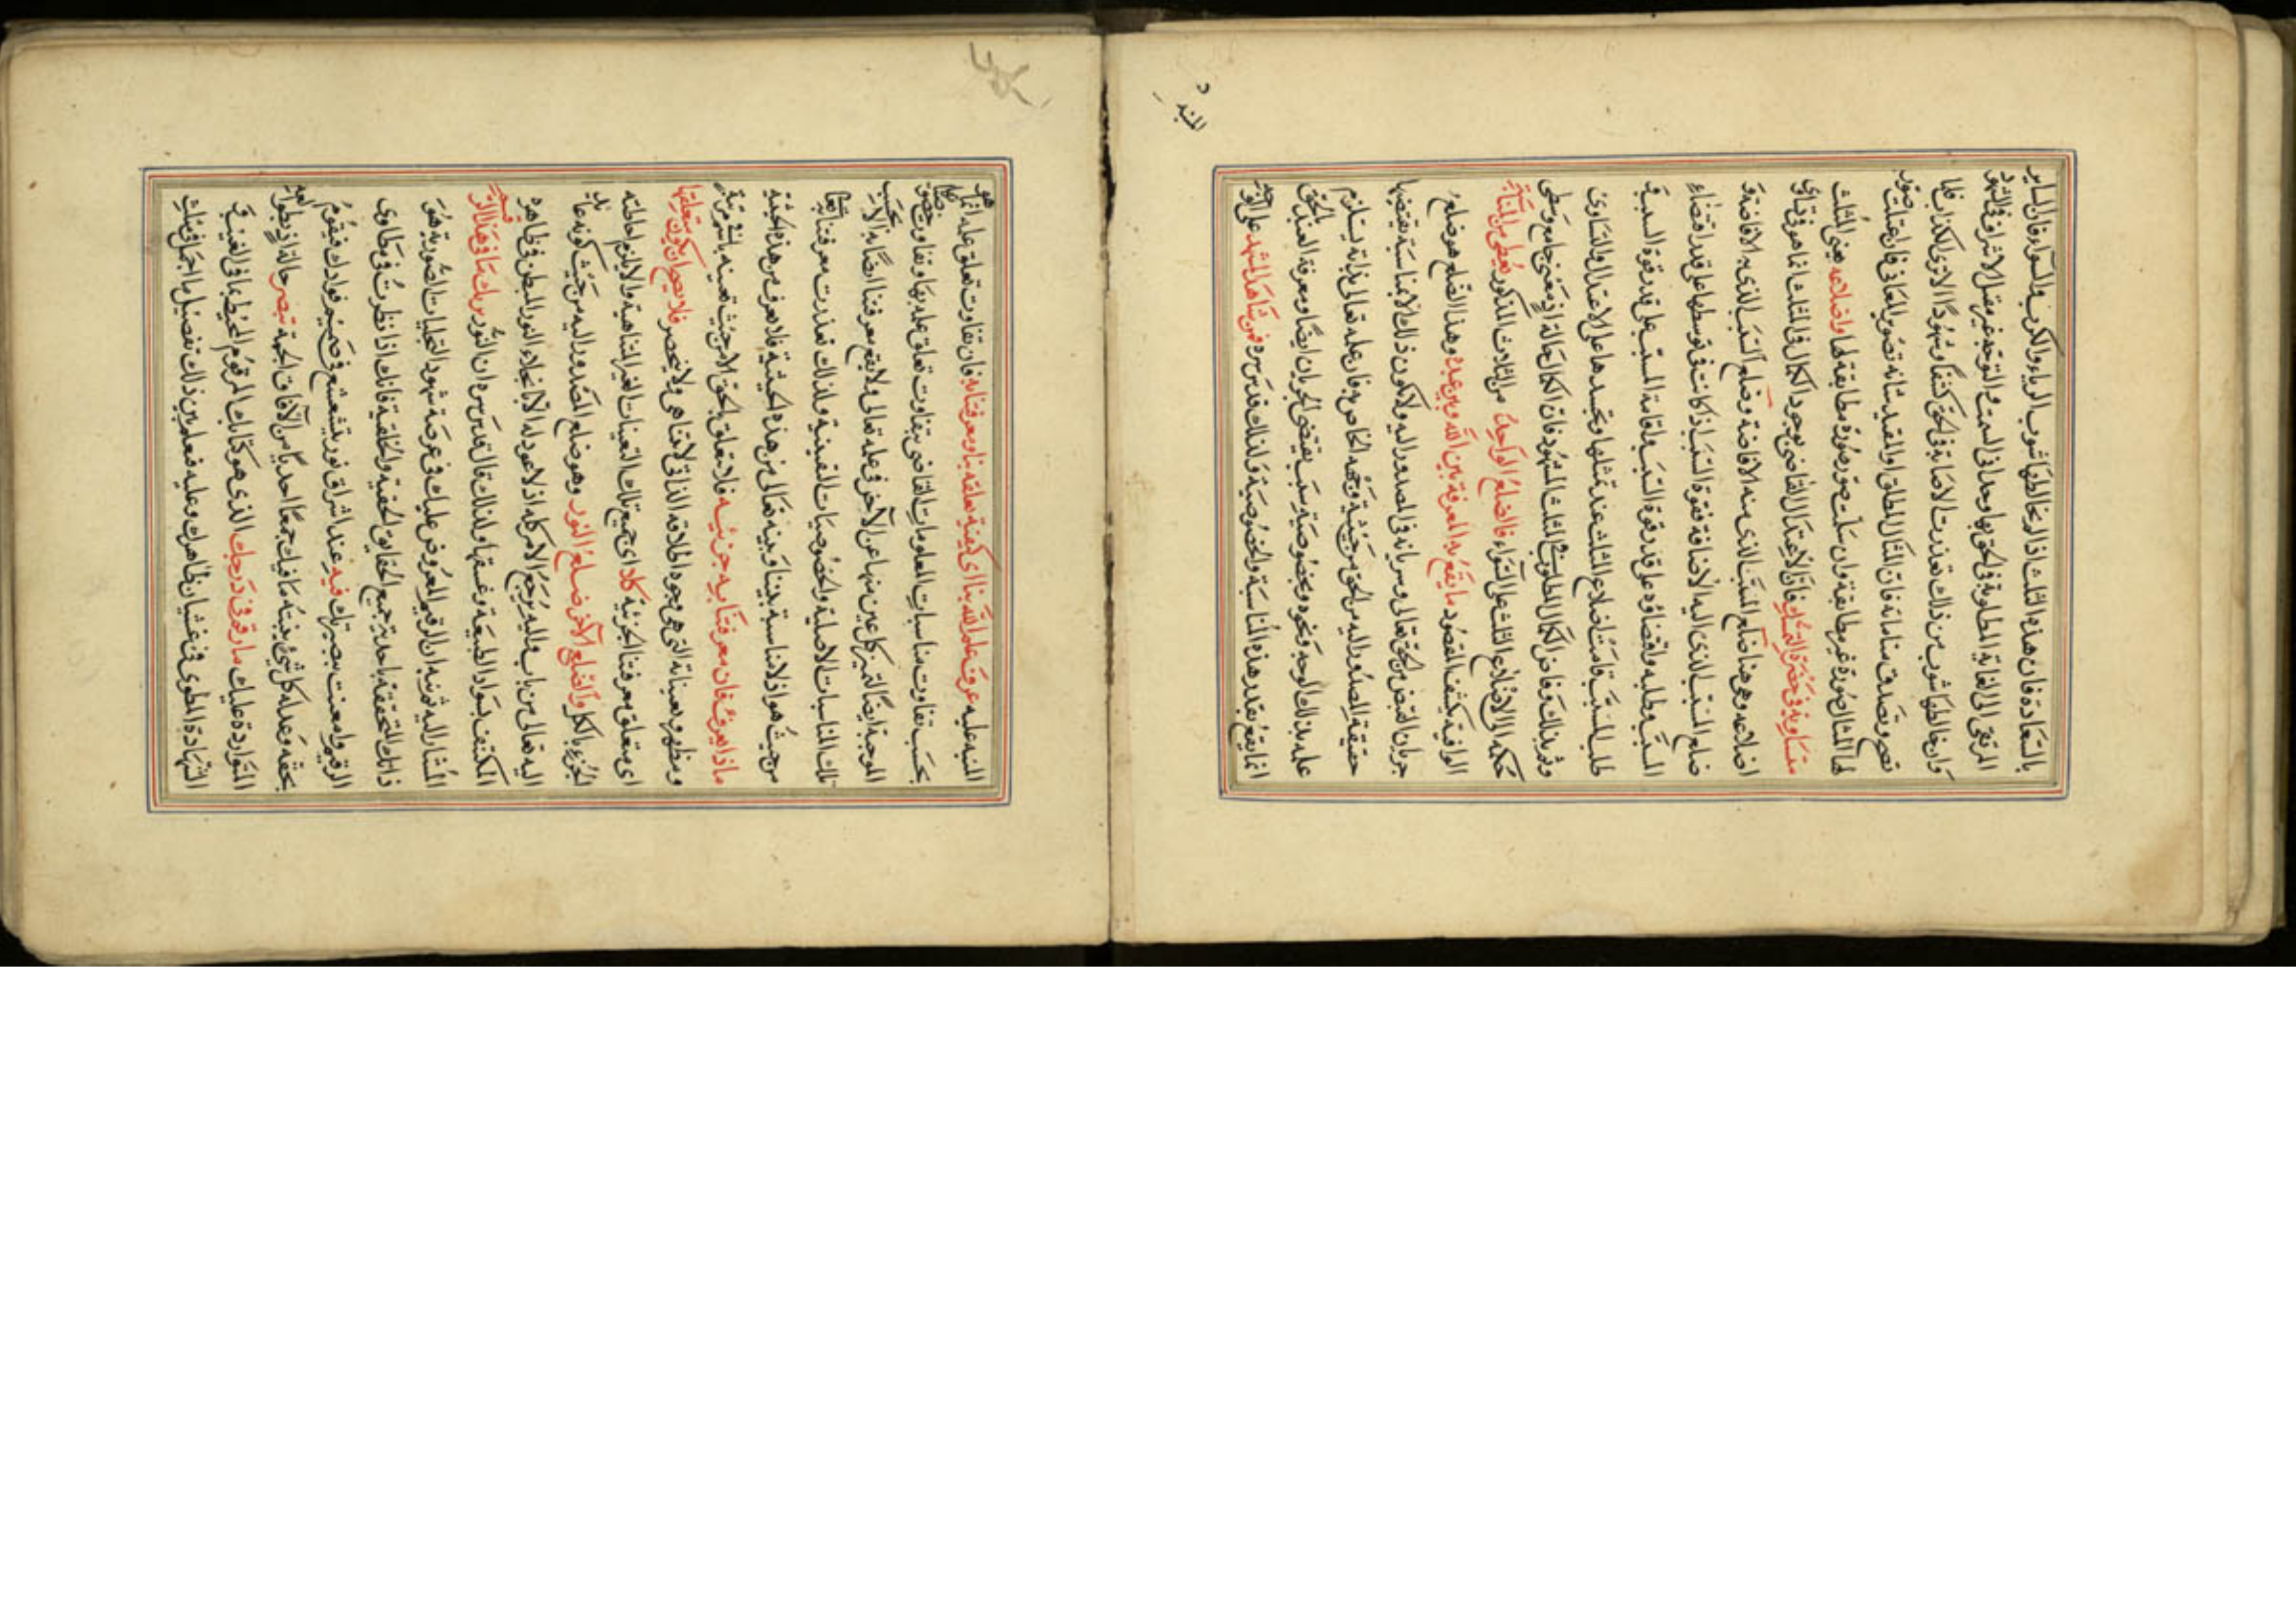 بالسعادة فان هذه الثلث اذا لم يخالطها شوب الرياء والكرب والسواء فان الساير
المرتقى الى الغاية المطلوبة فى الحق بها وحدانى السمت والتوجه غير مقل الاشراف فى الشهود
وان خالطها شوب من ذلك تعذرت الاصابة فى الحق كشفا وشهودا الا ترى الكذاب قلما
تصح وتصدق مناماته فان المثال المطلق او المقيد شانه تصوير المعانى فان اعتلت صور
لها المثال صورة غير مطابقة وان سلمت صور صورة مطابقة لها واضلاعه يعنى المثلث
متساوية فى حضرة التمثيل فان الاعتدال القاضى بوجود الكمال فى المثلث انما هو فى تساوى
اضلاعه وهى هنا ضلع المسبب الذى منه الافاضة وضلع السبب الذى به الافاضة و
ضلع المسبب الذى اليه الاضافة فقوة السبب اذ كانت فى توسطها على قدر اقتضاء
المسبب وطلبه واقتضاؤه على قدر قوة السبب واقامة المسبب على قدر قوة السبب فى
طلب المسبب قامت اضلاع المثلث عند تمثلها وتجسدها على الاعتدال والتساوى
وثم بذلك وفاض الكمال المطلوب فى المثلث المشهود فان الكمال حالة او معنى جامع وسطى
حكمه الى الاضلاع الثلث على السواء فالضلع الواحد من الثلاث المذكور يعطى من المناسبة
الوافية بكشف المقصود ما يقع به المعرفة بين الله وبين عبده وهذا الضلع هو ضلع
جريان الفيض من الحق تعالى وسريانه فى المصدور اليه ولا يكون ذلك الا بمناسبة يقتضيها
حقيقة المصدور اليه من الحق من حيثية وجهه الخاص به فان علمه تعالى بذاته يستلزم
علمه بذلك الوجه ونحوه وبخصوصية سبب يقتضى الجريان ايضا ومعرفة العبد بالحق
انما يقع بقدر هذه المناسبة والخصوصية ولذلك قدس سره فمن شاهد المشهد على الوجه
المنبه
المنبه عليه عرف علم الله بنا اى كيفية تعلقه بنا ومعرفتنا به فان تفاوت تعلق علمه انما هو
بحسب تفاوت مناسبات المعلومات القاضى بتفاوت تعلق علمه بها وتفاوت حصص
الموجبة ايضا لتميز كل عين منها عن الآخر فى علمه تعالى ولا يقع معرفتنا ايضا به الا بحسب
تلك المناسبات الاصلية والخصوصيات التعينية ولذلك تعذرت معرفتنا به تعالى
من حيث هو اذ لا مناسبة بيننا وبينه تعالى من هذه الحيثية فلا يعرف من هذه الحيثية
ماذا يعرف فان معرفتنا به جزئية فلا تتعلق بالحق الا من حيث تعينه بالنسبة مرتبة
ومظهر وتعيناته التى هى وجوه اطلاقه الذاتى لا تتناهى ولا تنحصر فلا يصح ان يكون متعلقها
اى متعلق معرفتنا الجزئية كلا اى جميع تلك التعينات الغير المتناهية والا يلزم احاطته
الجزء بالكل والضلع الآخر ضلع النور وهو ضلع المصدور اليه من حيث كونه عائد
اليه تعالى من باب واليه يرجع الامر كله اذ لا عود له الا بانجلاء النور المبطن فى ظاهره
المكتنف بسواد الطبيعة وغسقها ولذلك قال قدس سره ان النور يريك ما فى هذا الرقيم
المشار اليه شهود ان الرقيم المعروض عليك فى عرصة شهود التجليات الصورية هو
ذاتك المتحققة باحدية جميع الحقايق الحقية والخلقية فانك اذا نظرت فى مطاوى
الرقيم وامعنت ببصيرتك فيه عند اشراق نور يتشعشع فى صميم فوادك فيقوم
بحقه وعدله كل شئ يغيثه مما فيك جمعا احديا من الآفاق الجمة تبصر حالة اذ بطوالعه
المتواردة عليك ما رقم فى درجك الذى هو كتابك المرقوم المحيط بما فى الغيب و
الشهادة المطوى فى غشيان ظاهرك وعليه فتعلم بين ذلك تفصيل ما اجمل فى مثلث